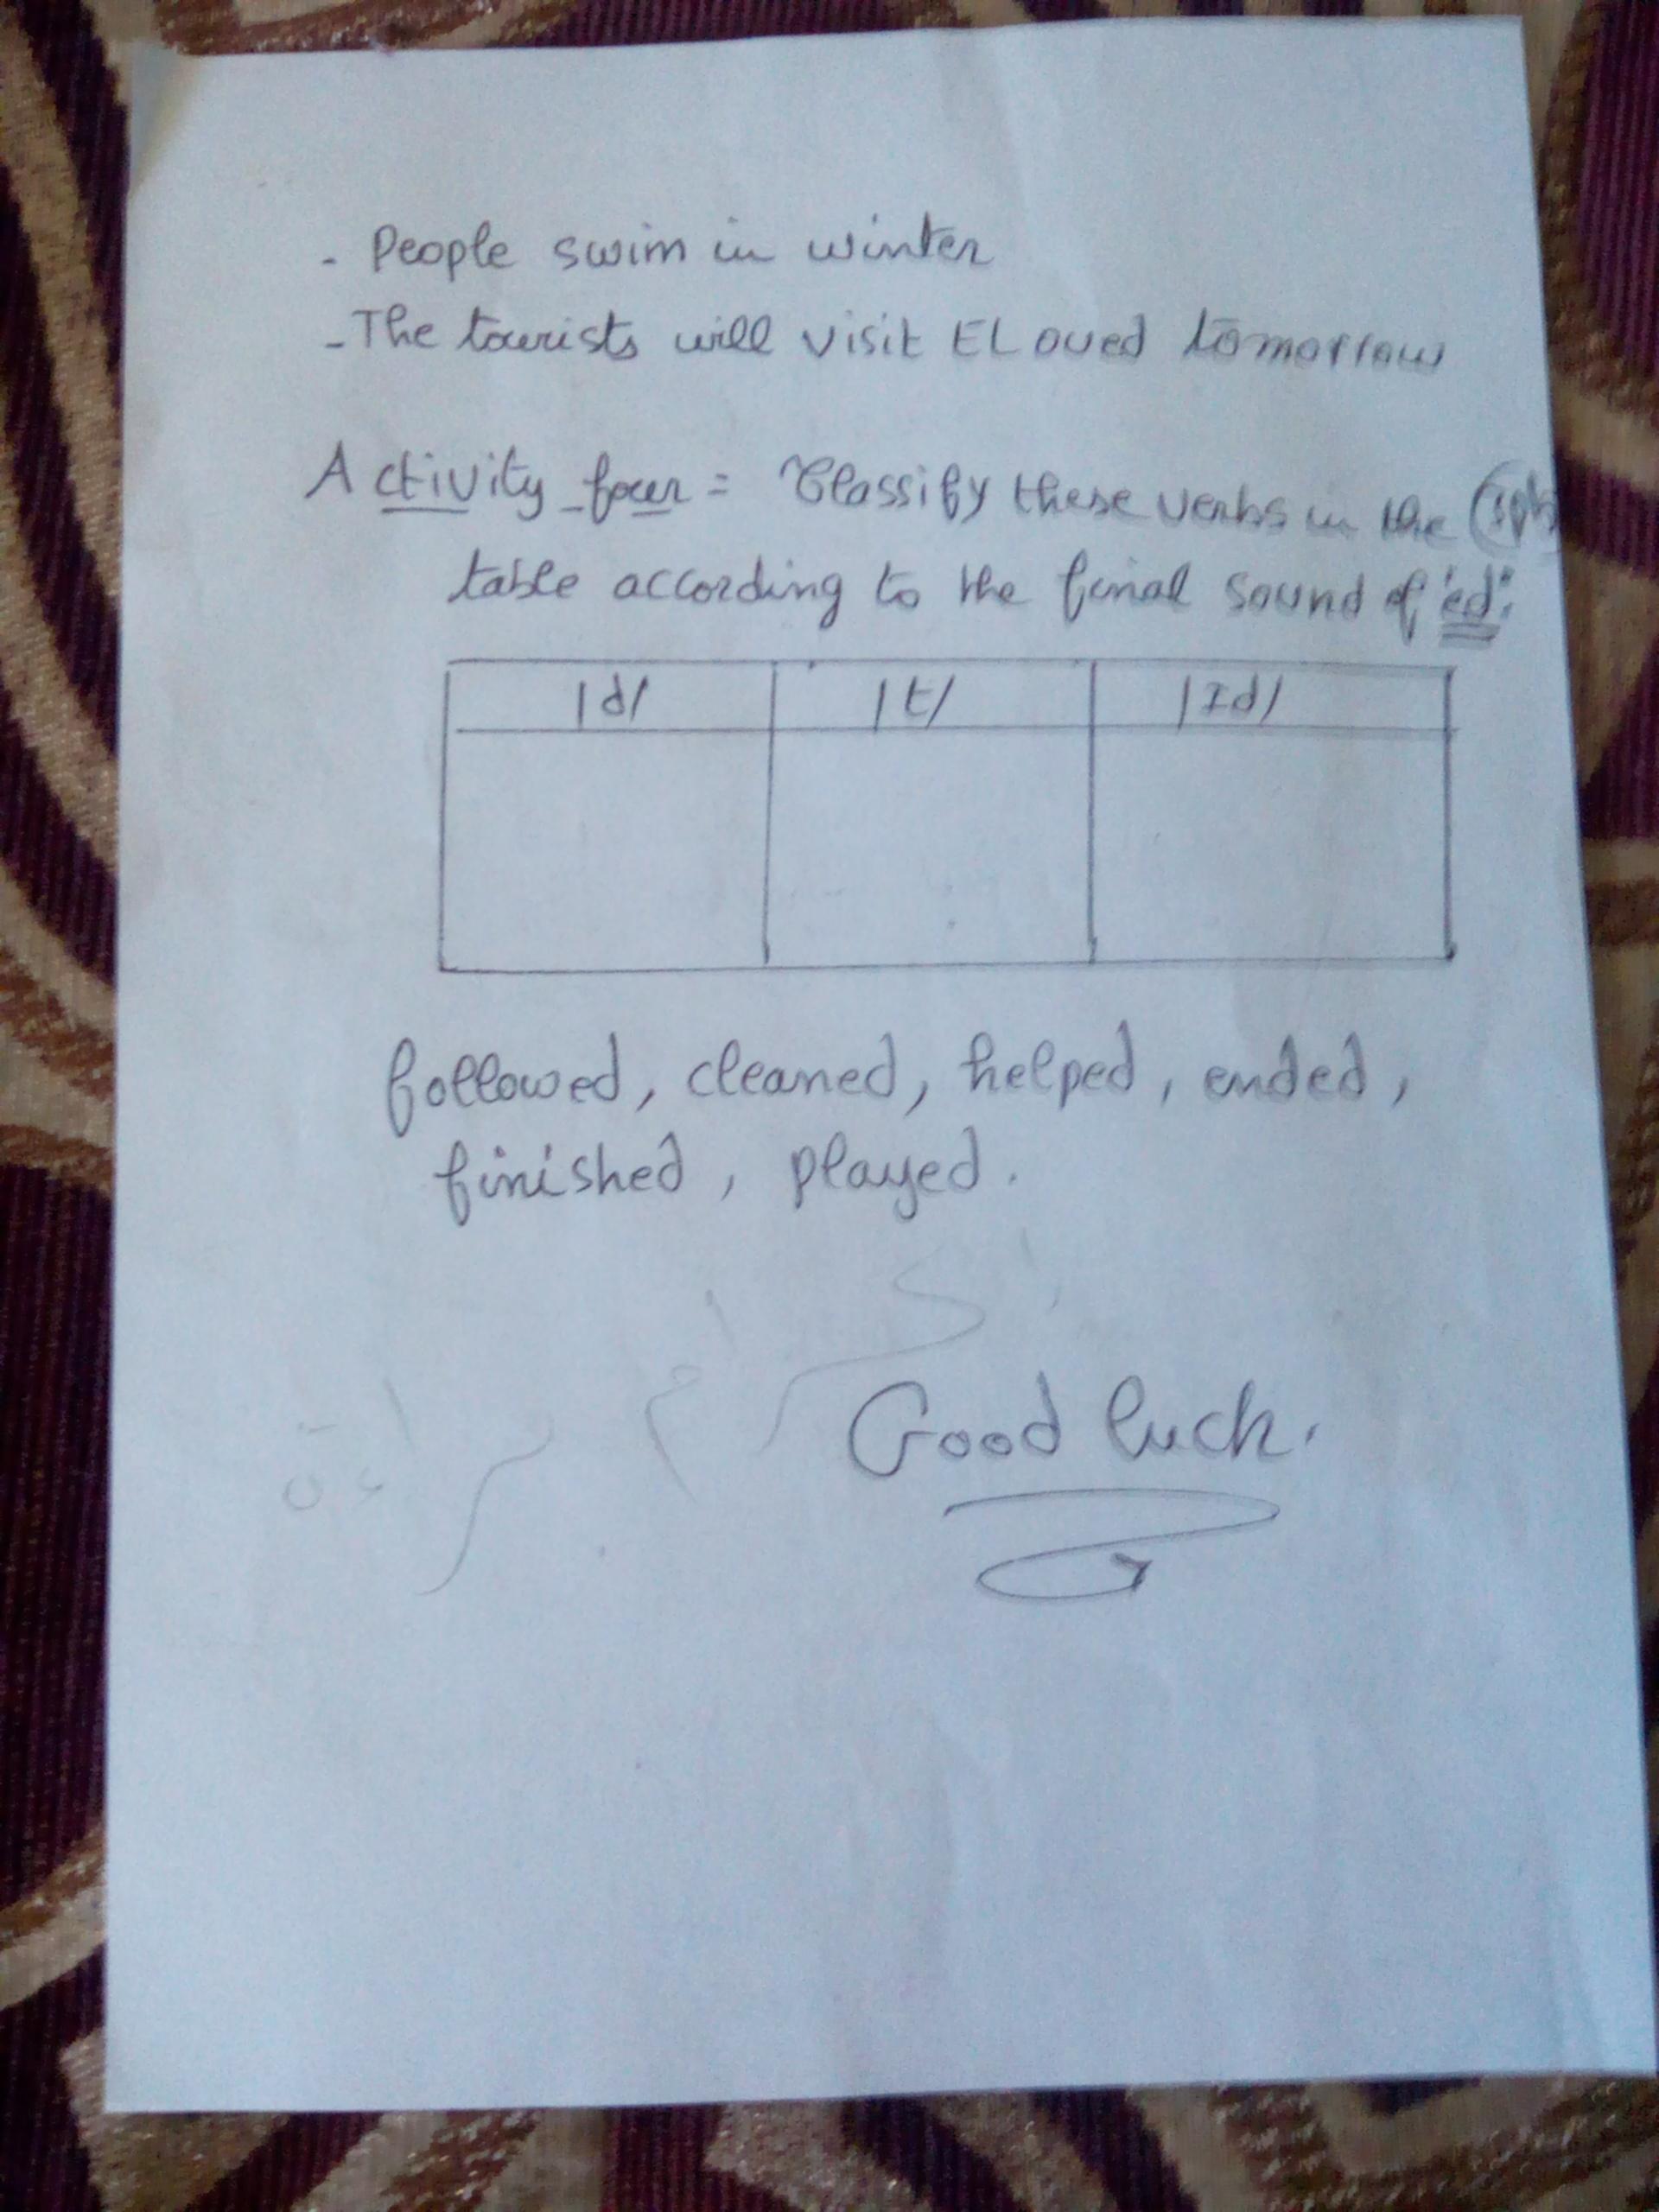 - People swim in winter
- The tourists will visit EL oued tomorrow
Activity four = Classify these verbs in the
table according to the final sound of "ed":
/d/ /t/ /Id/
followed, cleaned, helped, ended,
finished, played.
Good luck.